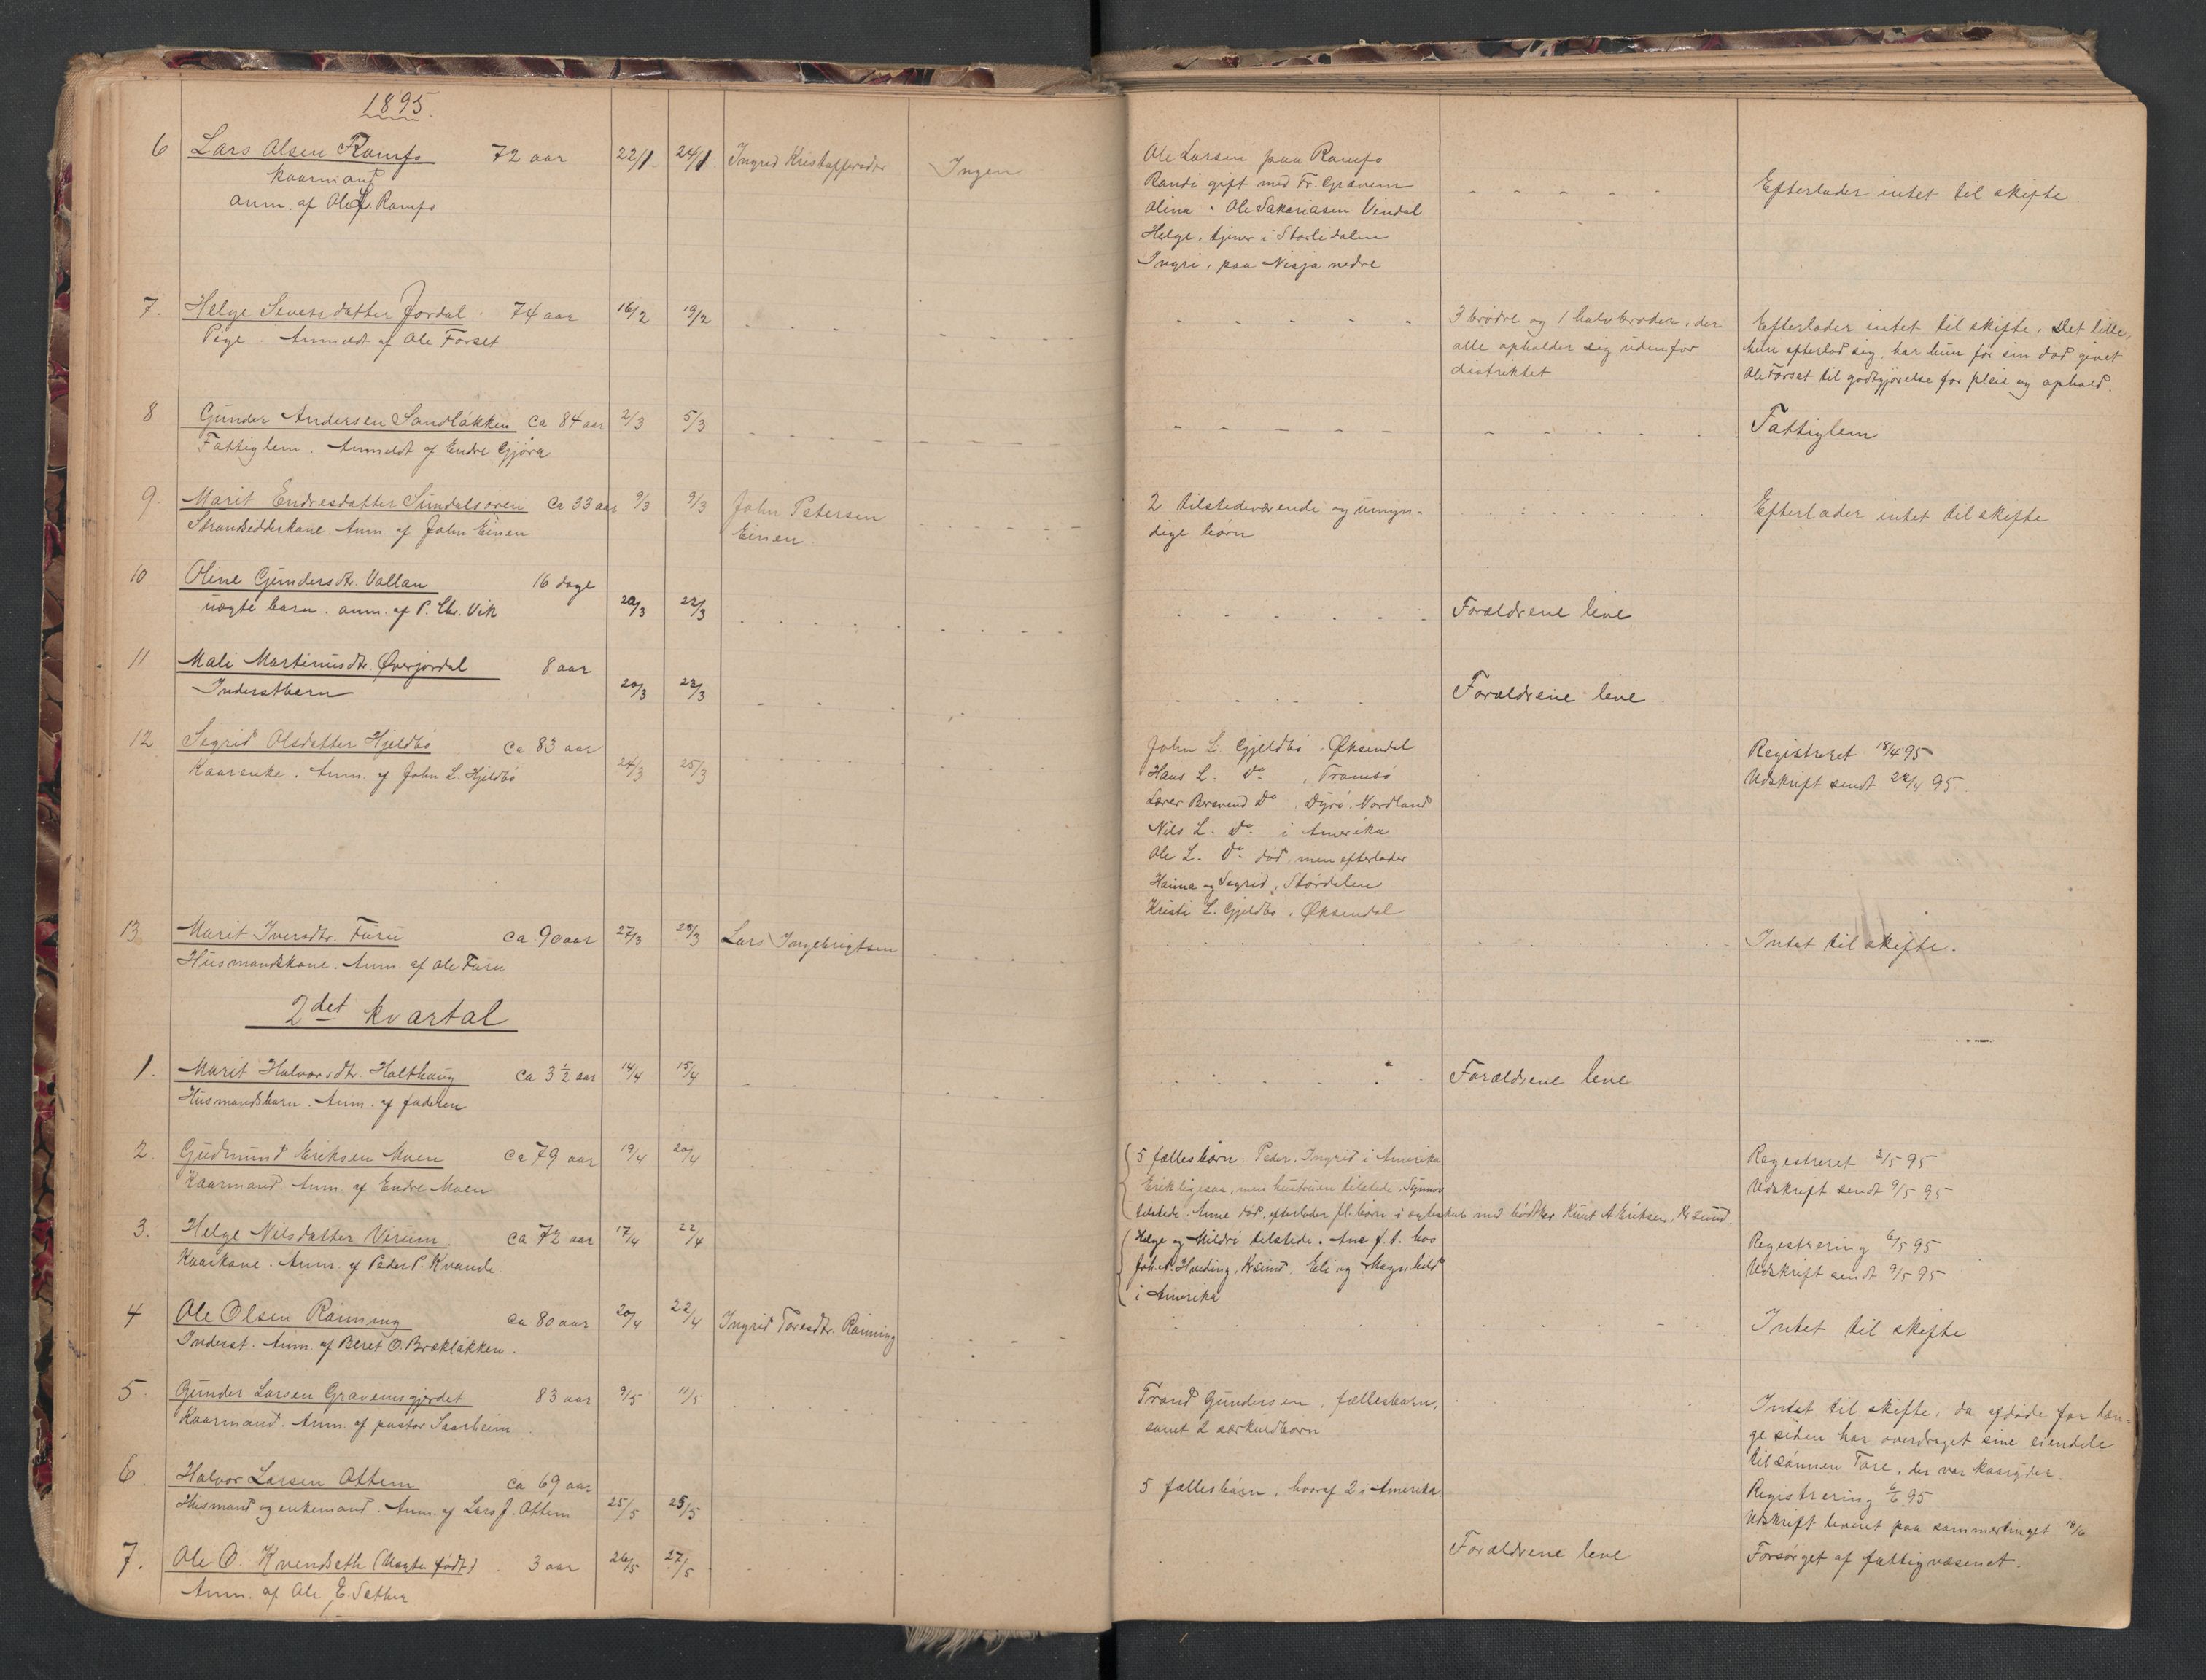 1895.
6 Lars Olsen Romfo 72 aar 22/1 24/1 Ingrid Kristoffersdtr Ingen
Kaarmand
anm. af Ole L. Romfo
Ole Larsen paa Romfo
Randi gift med Fr. Gravem - - - - - Efterlader intet til skifte
Olina " Ole Sakariasen Vendal
Helge, tjener i Storledalen
Ingri, paa Nisja nedre
7. Helge Siversdatter Jordal. 74 aar 16/2 19/2 - - - -
Pige. Anmeldt af Ole Forset
3 brødre og 1 halvbroder, der
alle opholder sig udenfor
distriktet
Efterlader intet til skifte. Det lille,
hun efterlod sig, har hun før sin død givet
Ole Forset til godtgjørelse for pleie og ophold.
8 Gunder Andersen Sandløkken ca 84 aar 2/3 5/3 - - - - Fattiglem
Fattiglem. Anmeldt af Endre Gjøra
9. Marit Endresdatter Sundalsøren ca 33 aar 9/3 9/3 John Petersen
Strandsidderkone. Anm. af John Einen Einen
2 tilstedeværende og umyn-
dige børn
Efterlader intet til skifte
10 Oline Gundersdtr. Vollan 16 dage
uægte barn. anm. af P. Chr. Vik 20/3 22/3 Forældrene leve
11 Mali Martinusdtr. Øverjordal 8 aar
Inderstbarn 20/3 22/3 Forældrene leve.
12 Segrid Olsdatter Hjeldbø ca 83 aar
Kaarenke. Anm. af John L. Hjeldbø 24/3 25/3
John L. Gjeldbø. Øksendal
Hans L. Do , Tromsø
Lærer Bersvend Do , Dyrø. Nordland
Nils L. Do i Amerika
Ole L. Do død, men efterlader
Hanna og Segrid, Størdalen
Kristi L. Gjeldbø, Øksendal
Registreret 18/4 95
Udskrift sendt 22/4 95
13. Marit Iversdtr. Furu ca. 90 aar 27/3 28/3 Lars Ingebrigtsen Intet til skifte.
Husmandskone. Anm. af Ole Furu
2det kvartal
1. Marit Halvorsdtr. Holthaug ca 3 ½ aar 14/4 15/4 Forældrene leve
Husmandsbarn. Anm. af faderen
2. Gudmund Eriksen Moen ca 79 aar 19/4 20/4
Kaarmand. Anm. af Endre Moen
5 fællesbørn: Peder, Ingrid i Amerika
Erik ligesaa, men hustruen tilstede. Synnøv
tilstede. Anne død, efterlader fl. børn i egteskab med bødker Knut A Eriksen, Krsund.
Registreret 3/5 95
Udskrift sendt 9/5 95
3. Helge Nilsdatter Virum ca 72 aar 17/4 22/4
Kaarkone. Anm. af Peder P. Kvande
Helge og Mildri tilstede. Ane f. t. hos
Joh. A. Houding, Krsund, Eli og Magnhild
i Amerika
Registrering 6/5 95
Udskrift sendt 9/5 95
4 Ole Olsen Rönning ca 80 aar 20/4 22/4 Ingrid Toresdtr. Rönning Intet til skifte
Inderst. Anm. af Beret O. Brækløkken.
5. Gunder Larsen Gravemsgjerdet 83 aar 9/5 11/5
Kaarmand. Anm. af pastor Saarheim
Trond Gundersen, fællesbarn,
samt 2 særkuldbørn
Intet til skifte, da afdøde for læn-
ge siden har overdraget sine eiendele
til sønnen Tore, der var kaaryder.
6. Halvor Larsen Ottem ca 69 aar
Husmand og enkemand. Anm. af Lars J. Ottem 25/5 25/5
5 fællesbørn, hvoraf 2 i Amerika
Registrering 6/6 95
Udskrift leveret paa sommertinget 18/6
7. Ole O. Kvendseth (Uægte født) 3 aar 26/5 27/5 Forældrene leve Forsørget af fattigvæsenet.
Anm. af Ole E. Sæther